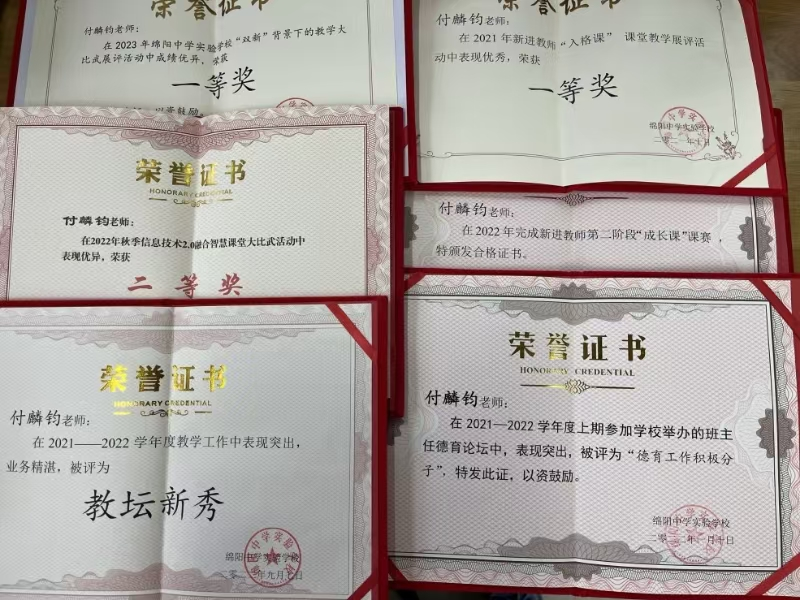 荣誉证书
付麟钧老师：
在2023年绵阳中学实验学校“双新”背景下的教学大
比武展评活动中成绩优异，荣获
一等奖
以资鼓励
荣誉证书
付麟钧老师：
在2021年新进教师“入格课” 课堂教学展评活
动中表现优秀，荣获
一等奖
绵阳中学实验学校
荣誉证书
HONORARY CREDENTIAL
付麟钧老师：
在2022年秋季信息技术2.0融合智慧课堂大比武活动中
表现优异，荣获
二等奖
付麟钧老师：
在2022年完成新进教师第二阶段“成长课”课赛，
特颁发合格证书。
荣誉证书
HONORARY CREDENTIAL
付麟钧老师：
在2021——2022学年度教学工作中表现突出，
业务精湛，被评为
教坛新秀
绵阳中学实验学校
荣誉证书
HONORARY CREDENTIAL
付麟钧老师：
在2021—2022学年度上期参加学校举办的班主
任德育论坛中，表现突出，被评为“德育工作积极分
子”，特发此证，以资鼓励。
绵阳中学实验学校